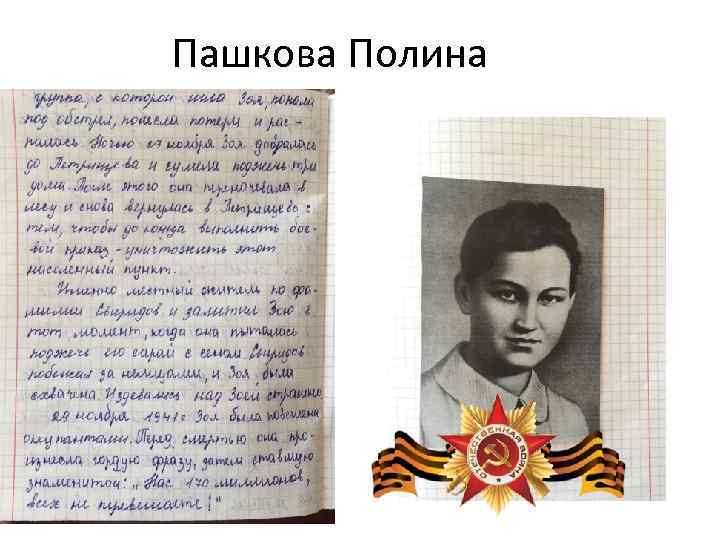 Пашкова Полина
группа, с которой шла Зоя, попала
под обстрел, понесла потери и рас-
палась. Ночью 27 ноября Зоя добралась
до Петрищева и сумела поджечь три
дома. После этого она переночевала в
лесу и снова вернулась в Петрищево с
тем, чтобы до конца выполнить бое-
вой приказ - уничтожить этот
населенный пункт.
Именно местный житель по фа-
милии Свиридов и заметил Зою в
тот момент, когда она пыталась
поджечь его сарай с сеном. Свиридов
побежал за немцами, и Зоя была
схвачена. Издевались над Зоей страшно.
29 ноября 1941г. Зоя была повешена
оккупантами. Перед смертью она про-
изнесла гордую фразу, затем ставшую
знаменитой: „Нас 170 миллионов,
всех не перевешаете!"
ОТЕЧЕСТВЕННАЯ ВОЙНА